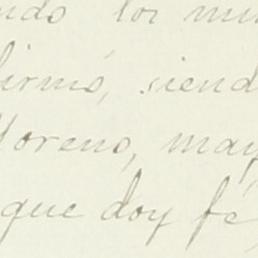 ndo los mis
firmó, siend
Moreno, may
que doy fé,